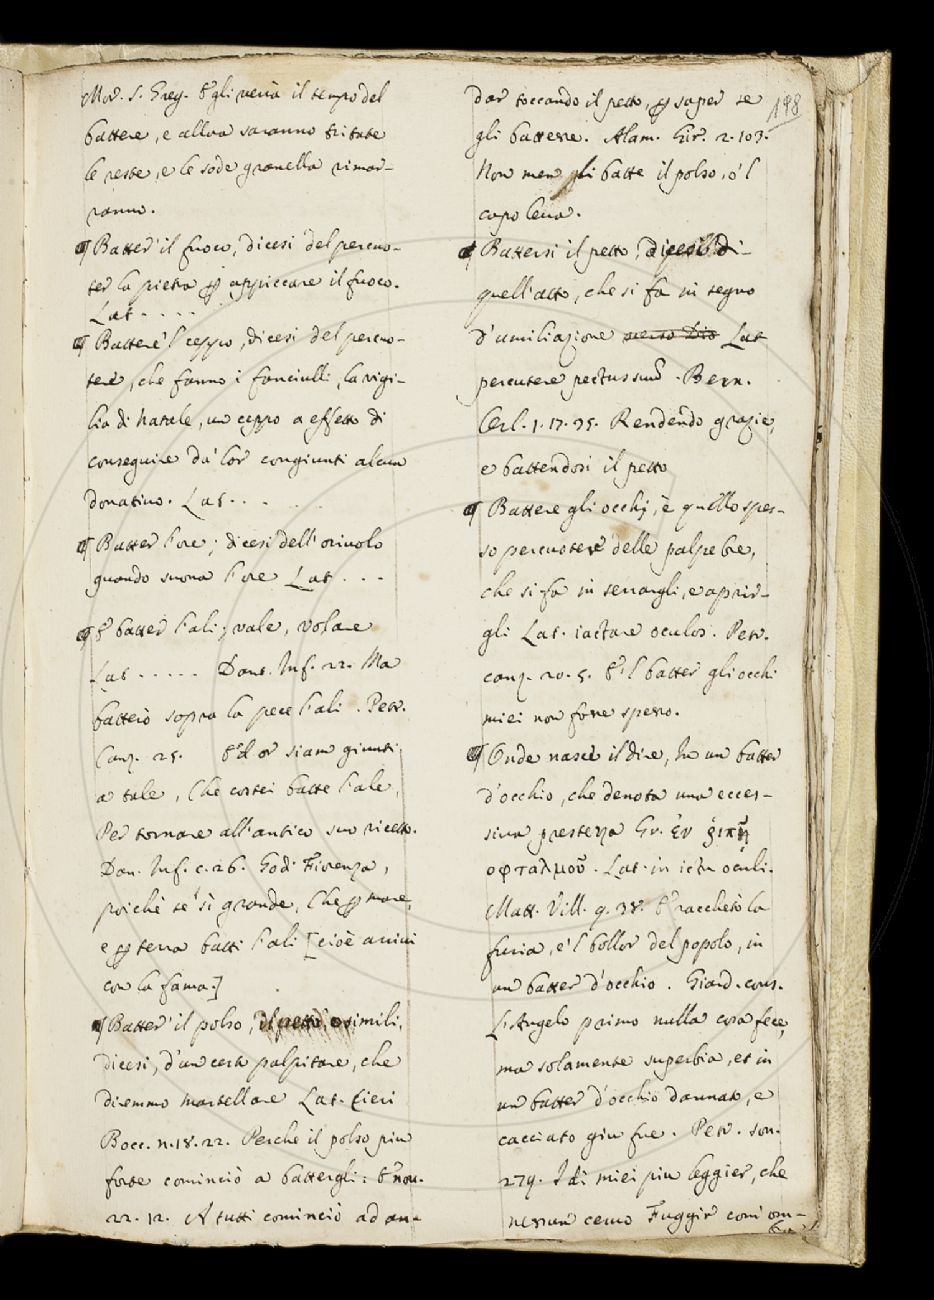 Mor. S. Greg. E gli verrà il tempo del
battere, e allora saranno tritate
le reste, e le sode granella rimar-
ranno.
¶ Batter' il fuoco, dicesi del percuo-
ter la pietra ꝑ appiccare il fuoco.
Lat. . . .
¶ Battere 'l ceppo, dicesi del percuo-
tere, che fanno i fanciulli, la vigi-
lia di Natale, un ceppo a effetto di
conseguire da' lor congiunti alcun
donativo. Lat. . .
¶ Batter l'ore; dicesi dell'oriuolo
quando suona l'ore Lat. . . .
¶ E batter l'ali; vale, volare
Lat. . . . . Dant. Inf. 22. Ma
batterò sopra la pece l'ali. Petr.
Canz. 25. Ed or siam giunti
a tale, Che costei batte l'ale,
Per tornare all'antico suo ricetto.
Dan. Inf. c. 26. Godi Fiorenza,
poichè se' sì grande, Che ꝑ mare,
e ꝑ terra batti l'ali [cioè arrivi
con la fama.]
¶ Batter' il polso, il petto, o simili,
dicesi, d'un certo palpitare, che
diremmo martellare Lat.
Bocc. n. 18. 22. Perche il polso piu
forte cominciò a battergli: E nou.
22. 12. A tutti cominciò ad an-
198
dar toccando il petto, ꝑ saper se
gli battesse. Alam. Gir. 2. 103.
Non men gli batte il polso, o 'l
capo leva.
¶ Battersi il petto, dicesi di
quell'atto, che si fa in segno
d'umiliazione verso Dio Lat
percutere pectus suum. Bern.
Orl. 1. 17. 35. Rendendo grazie,
e battendosi il petto
¶ Battere gli occhi, è quello spes-
so percuotere delle palpebre,
che si fa in serrargli, e aprir-
gli Lat. iactare oculos. Petr.
canz. 20. 5. E 'l batter gli occhi
miei non fosse spesso.
¶ Onde nasce il dire, In un batter
d'occhio, che denota una ecces-
siva prestezza Gr. ἐν ῥιπῇ
οφταλμοῦ. Lat. in ictu oculi.
Matt. Vill. 9. 38. E racchetò la
furia, e 'l bollor del popolo, in
un batter d'occhio. Giard. cons.
L'Angelo primo nulla cosa fece,
ma solamente superbia, et in
un batter d'occhio dannato, e
cacciato giù fue. Petr. son.
279. I dì miei piu leggier, che
nessun cervo Fuggir com' om-